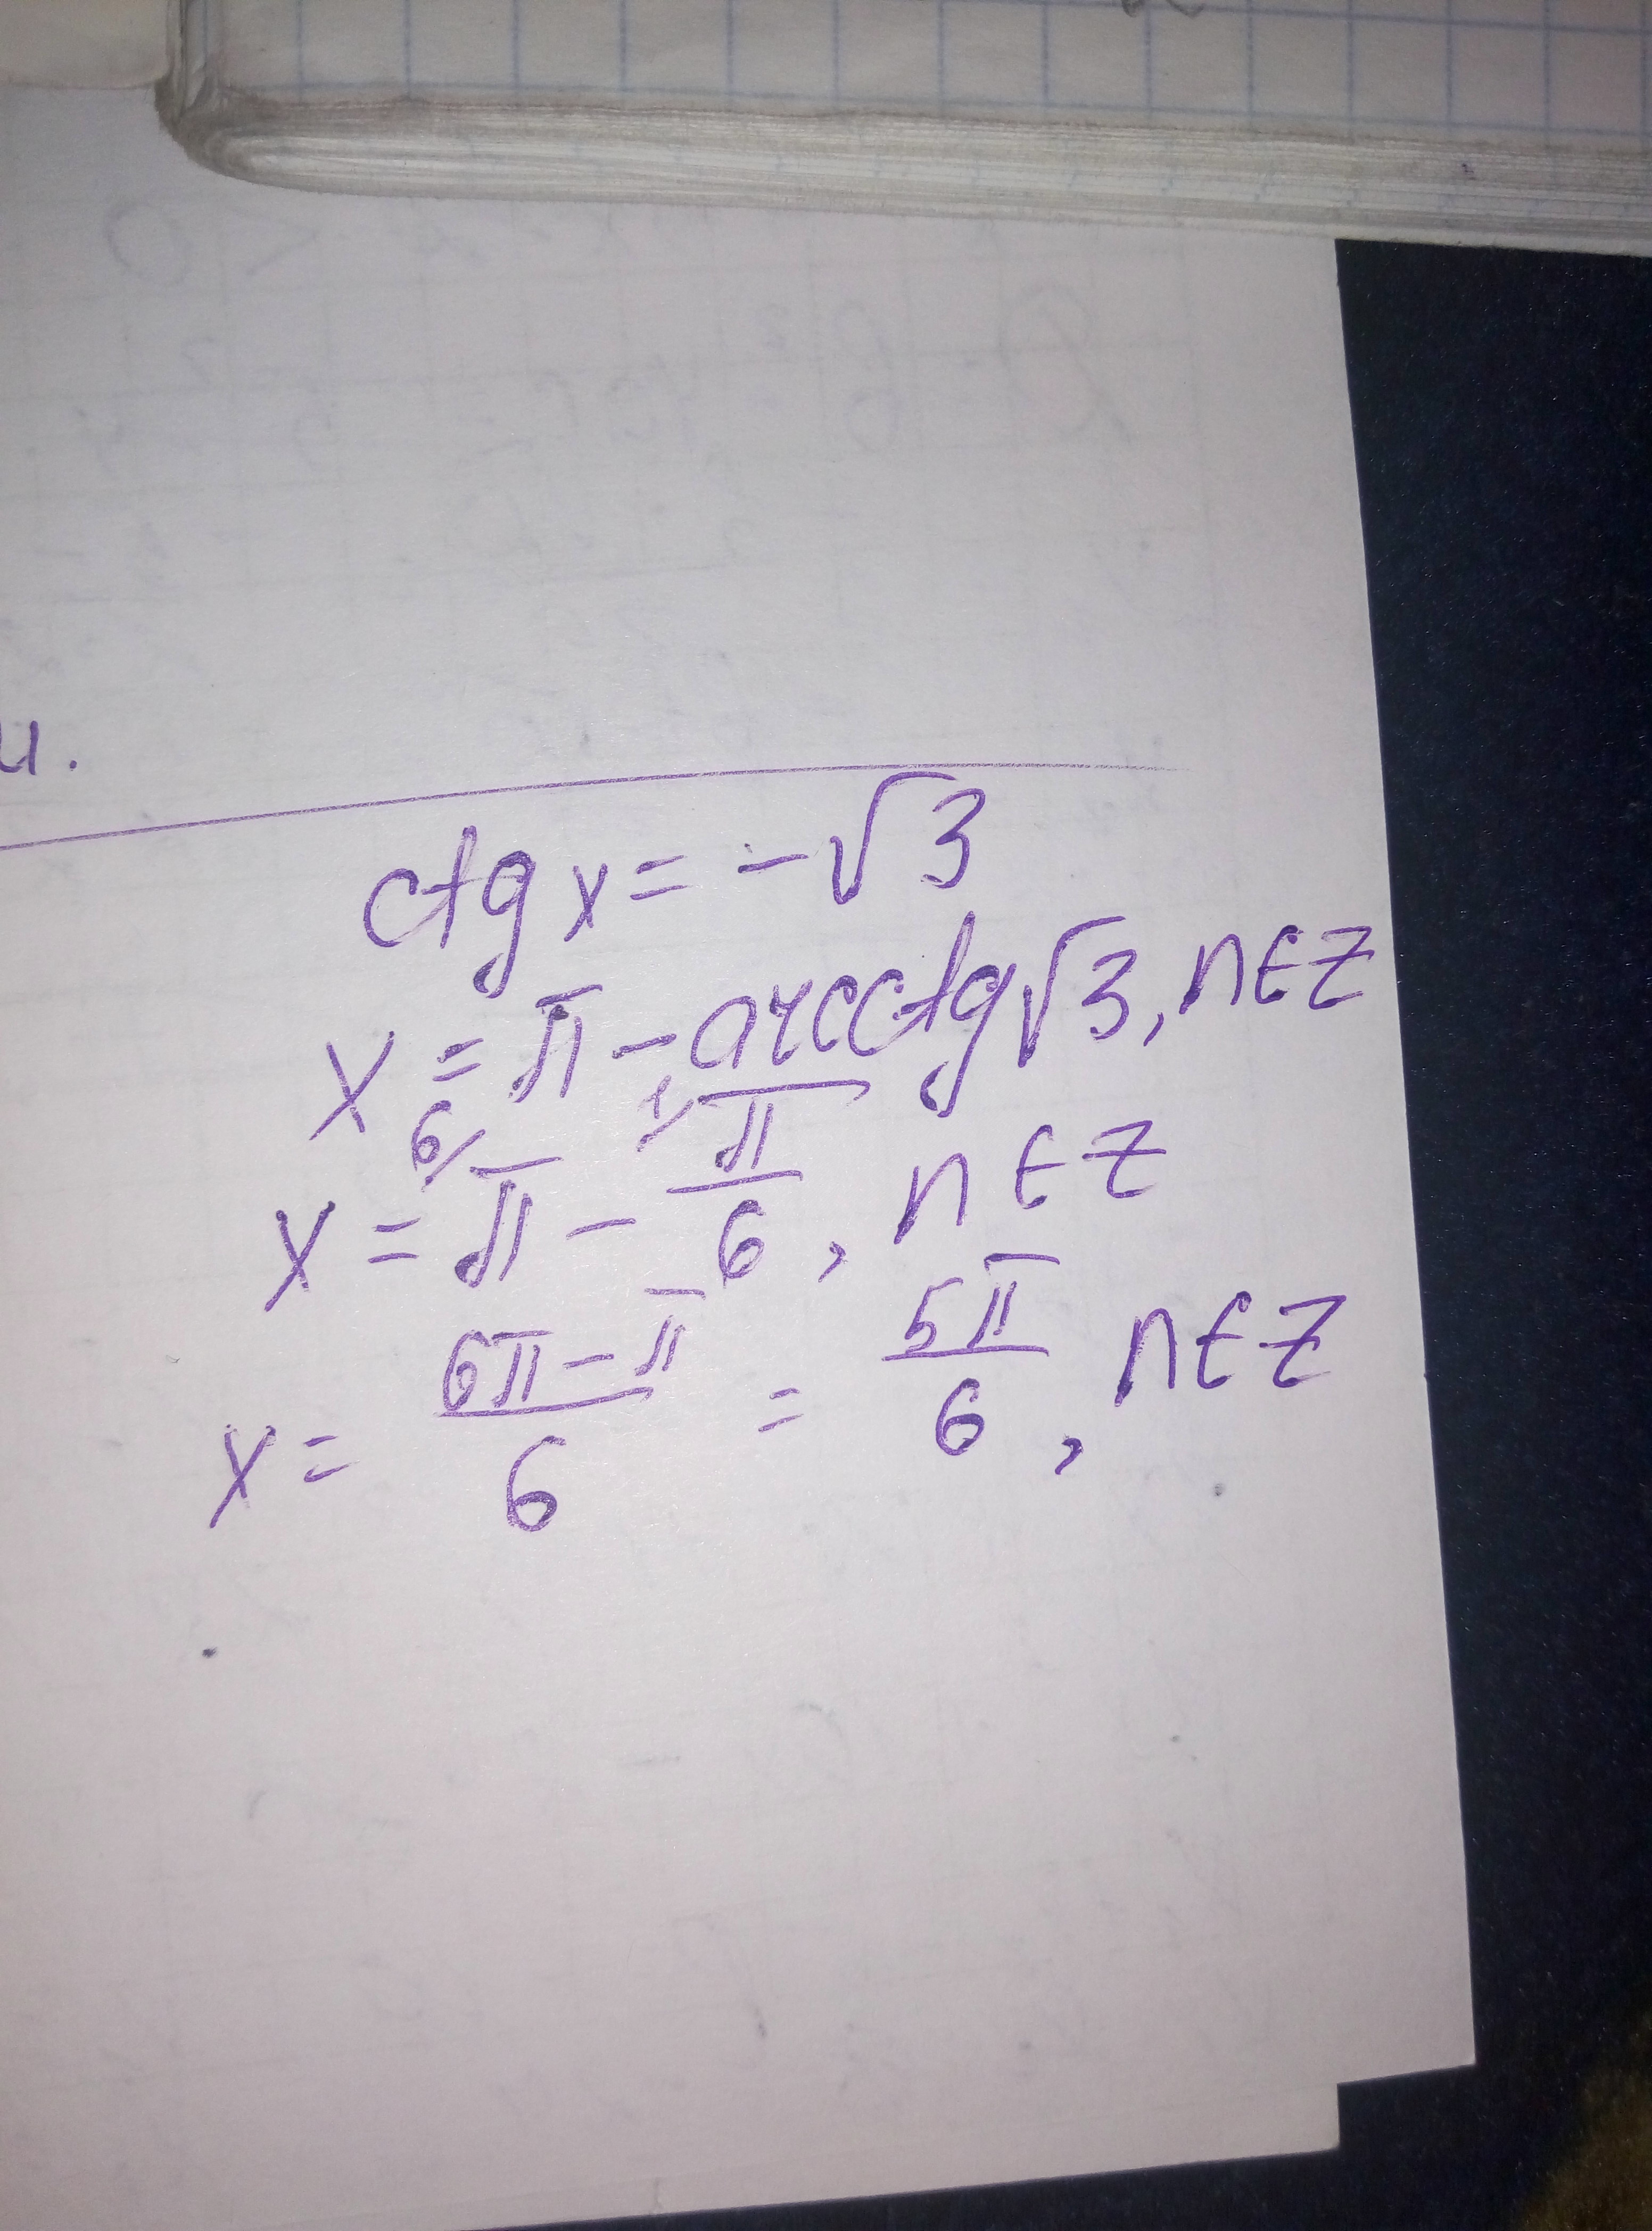 и.
ctg x = -√3
x = π - arcctg√3, n∈Z
x = ⁶⁄π - ¹⁄π/6, n∈Z
x = (6π - π)/6 = 5π/6, n∈Z